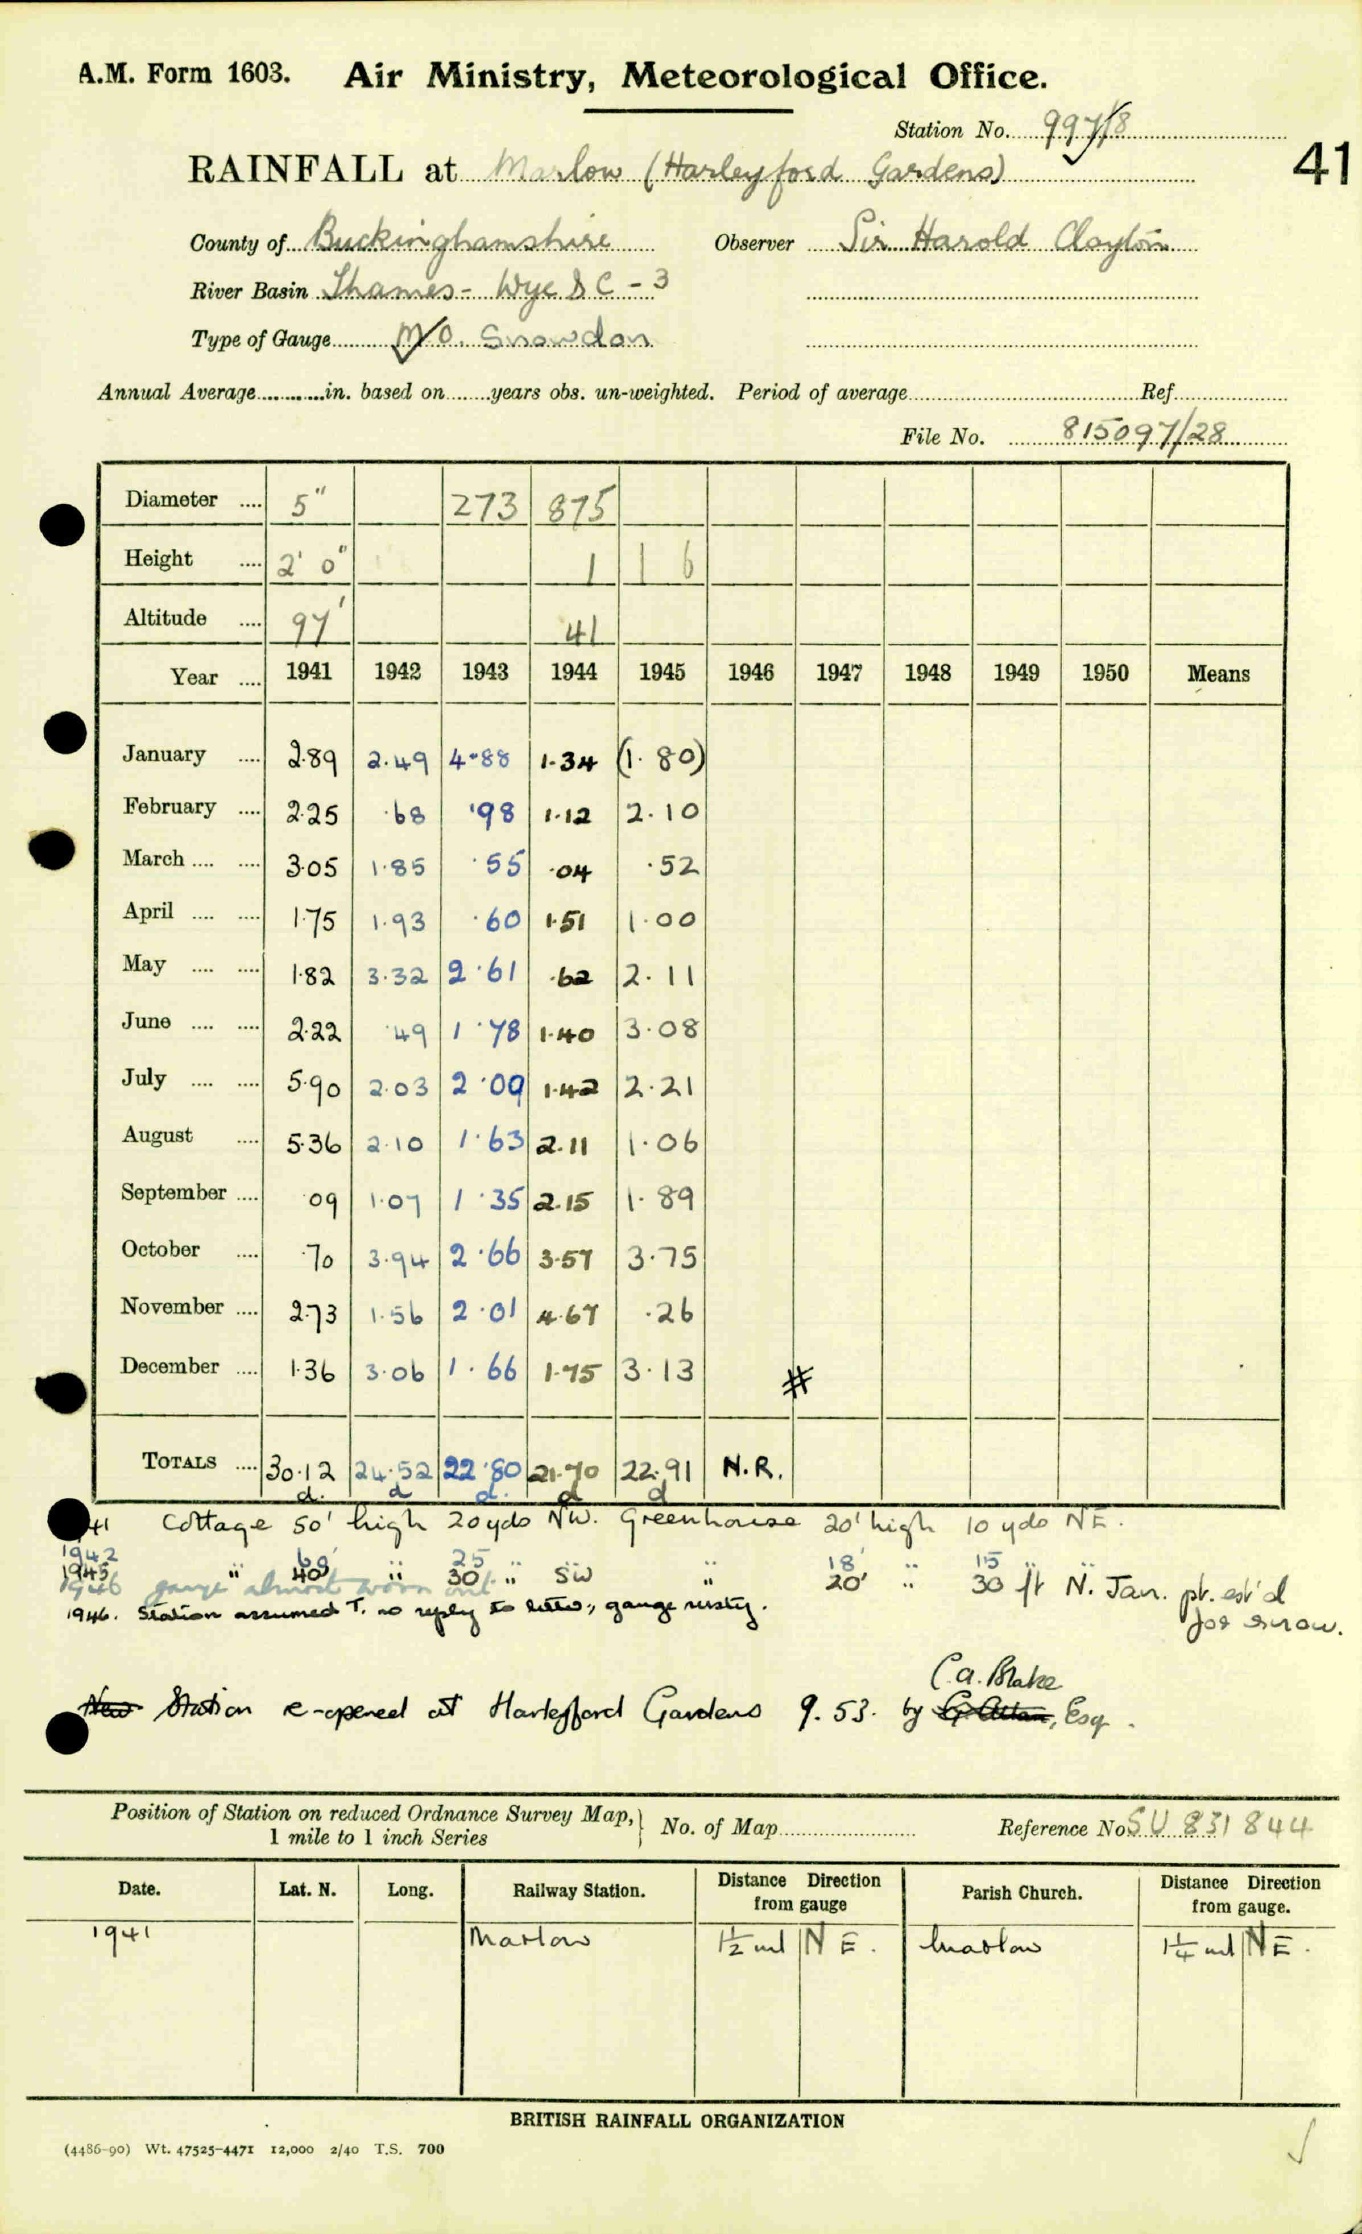 A.M. Form 1603. Air Ministry, Meteorological Office.
Station No. 997/18
41
RAINFALL at Marlow (Harleyford Gardens)
County of Buckinghamshire Observer Sir Harold Clayton
River Basin Thames - Wye & C - 3
Type of Gauge M/O. Snowdon
Annual Average............in. based on........years obs. un-weighted. Period of average........Ref........
File No. 815097/28
Diameter .... 5" 273 875
Height .... 2' 0" 1 1 6
Altitude .... 97' 41
Year .... 1941 1942 1943 1944 1945 1946 1947 1948 1949 1950 Means
January .... 2.89 2.49 4.88 1.34 (1.80)
February .... 2.25 .68 .98 1.12 2.10
March .... .... 3.05 1.85 .55 .04 .52
April .... .... 1.75 1.93 .60 1.51 1.00
May .... .... 1.82 3.32 2.61 .62 2.11
June .... .... 2.22 .49 1.78 1.40 3.08
July .... .... 5.90 2.03 2.09 1.42 2.21
August .... 5.36 2.10 1.63 2.11 1.06
September .... .09 1.07 1.35 2.15 1.89
October .... .70 3.94 2.66 3.57 3.75
November .... 2.73 1.56 2.01 4.67 .26
December .... 1.36 3.06 1.66 1.75 3.13 #
TOTALS .... 30.12 24.52 22.80 21.70 22.91 N.R.
d. d d. d d
41 Cottage 50' high 20 yds NW. Greenhouse 20' high 10 yds NE.
1942 60' 25 18' 15
1945 " 40' " 30 " SW " 20' " 30 ft N. Jan. pt. est'd
for snow.
1946 gauge almost worn out
1946. Station assumed T. no reply to letters, gauge rusty.
C.A. Blake
New Station re-opened at Harleyford Gardens 9.53. by Esq.
Position of Station on reduced Ordnance Survey Map,
1 mile to 1 inch Series
No. of Map........ Reference No SU 831 844
Date. Lat. N. Long. Railway Station. Distance Direction from gauge Parish Church. Distance Direction from gauge.
1941 Marlow 1½ ml NE. Marlow 1¼ ml NE.
BRITISH RAINFALL ORGANIZATION
(4486-90) Wt. 47525-4471 12,000 2/40 T.S. 700